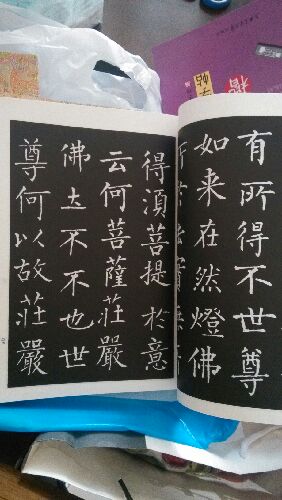 有所得不世尊
如来在然燈佛
得湏菩提扵意
云何菩薩莊嚴
佛土不不也世
尊何以故莊嚴